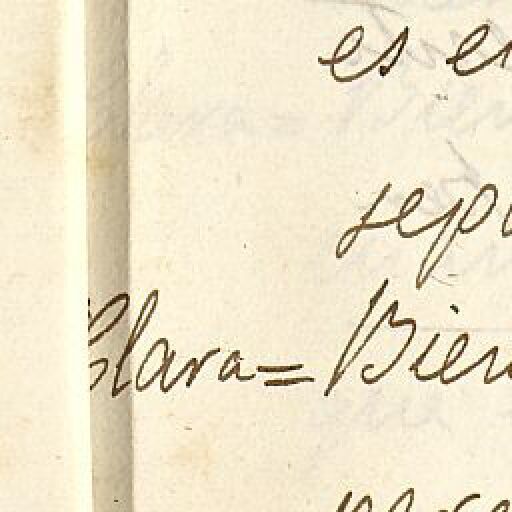 es e
sep
Clara= Bien